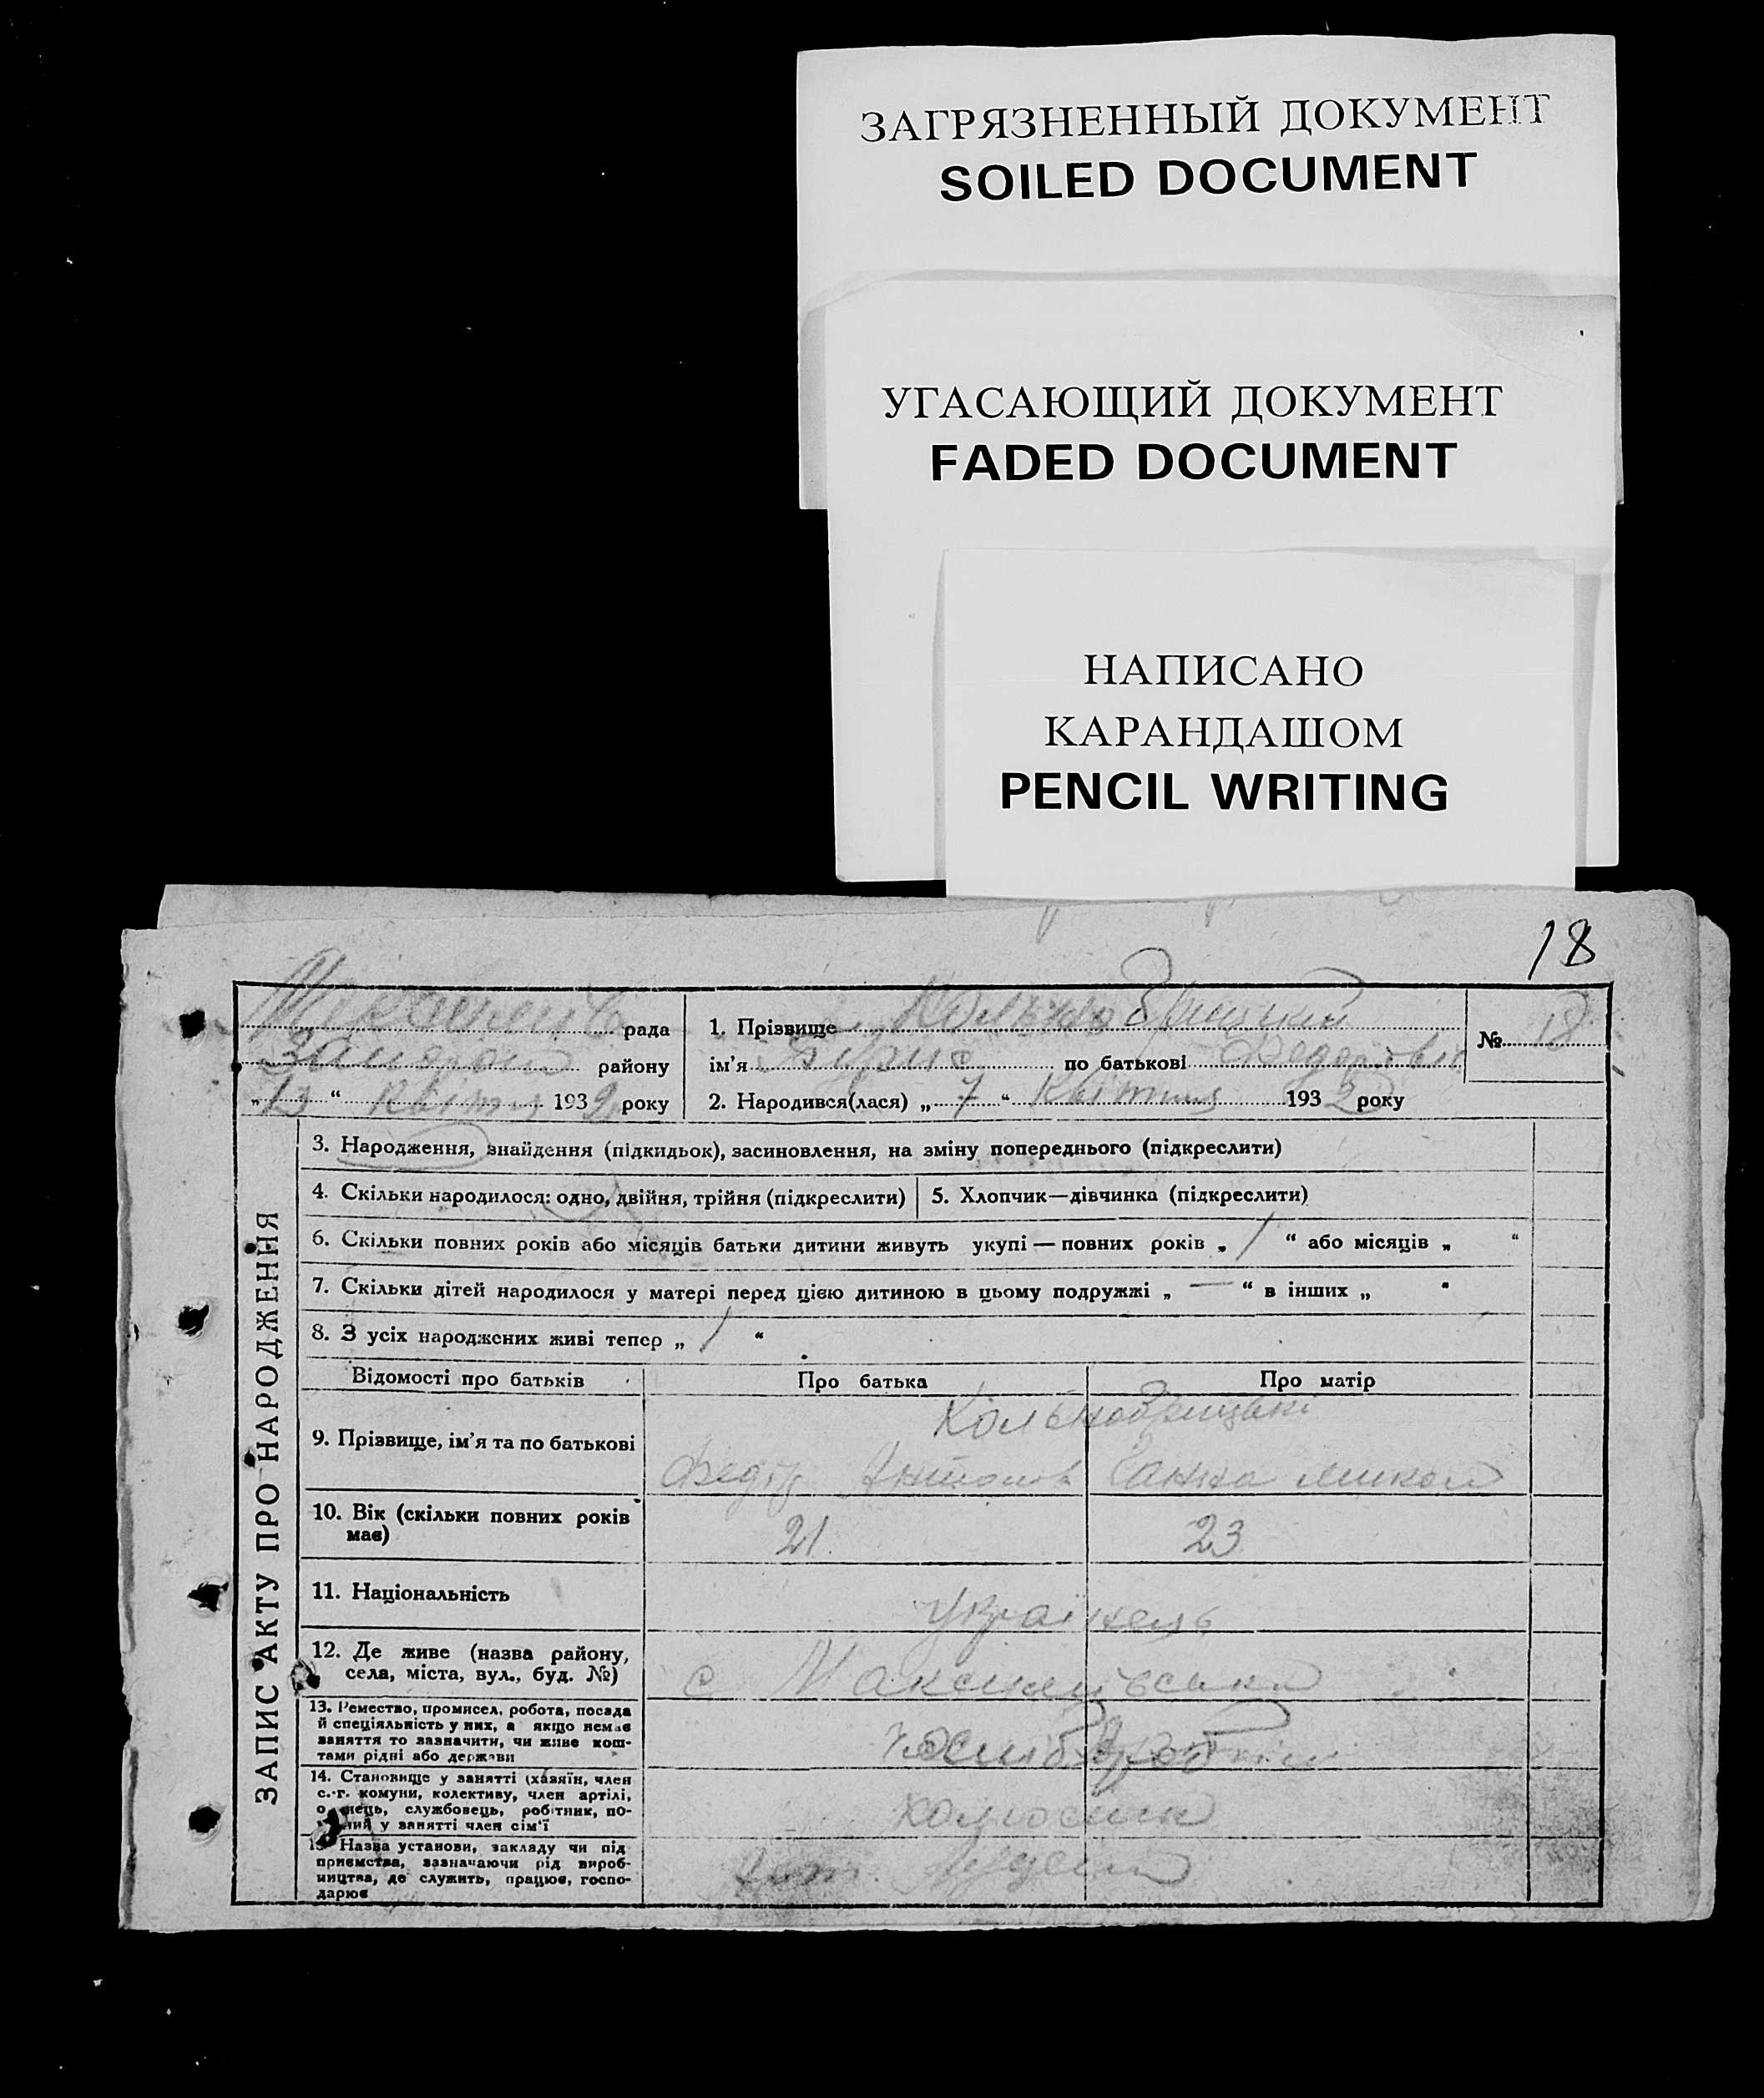 ЗАГРЯЗНЕННЫЙ ДОКУМЕНТ
SOILED DOCUMENT
УГАСАЮЩИЙ ДОКУМЕНТ
FADED DOCUMENT
НАПИСАНО
КАРАНДАШОМ
PENCIL WRITING
18
рада
району
„13“ 193 року
1. Прізвище
ім'я по батькові
2. Народився(лася) „7“ Квітня 193 року
№ 18
ЗАПИС АКТУ ПРО НАРОДЖЕННЯ
3. Народження, знайдення (підкидьок), засиновлення, на зміну попереднього (підкреслити)
4. Скільки народилося: одно, двійня, трійня (підкреслити)
5. Хлопчик—дівчинка (підкреслити)
6. Скільки повних років або місяців батьки дитини живуть укупі — повних років „1“ або місяців „ “
7. Скільки дітей народилося у матері перед цією дитиною в цьому подружжі „—“ в інших „ “
8. З усіх народжених живі тепер „1“
Відомості про батьків
Про батька
Про матір
9. Прізвище, ім'я та по батькові
Федір Антонов
Ганна Микол
10. Вік (скільки повних років має)
21
23
11. Національність
Українець
12. Де живе (назва району,
села, міста, вул., буд. №)
с
13. Ремество, промисел, робота, посада
й спеціяльність у них, а якщо немає
заняття то зазначити, чи живе кош-
тами рідні або держави
14. Становище у занятті (хазяїн, член
с.-г. комуни, колективу, член артілі,
службовець, робітник, по-
у занятті член сім'ї
15. Назва установи, закладу чи під
приємства, зазначаючи рід вироб-
ництва, де служить, працює, госпо-
дарює